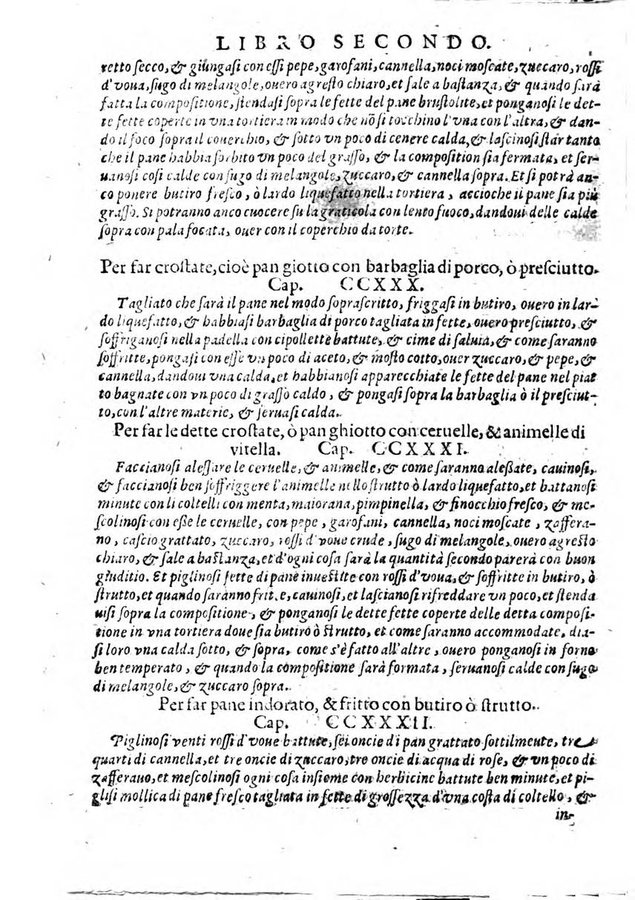 LIBRO SECONDO.
retto secco, & giungasi con essi pepe, garofani, cannella, noci moscate, zuccaro, rossi
d'voua, sugo di melangole, ouero agresto chiaro, et sale a bastanza, & quando sarà
fatta la compositione, stendasi sopra le fette del pane brustolite, et ponganosi le det-
te fette coperte in vna tortiera in modo che nõ si tocchino l'vna con l'altra, & dan-
do il foco sopra il couerchio, & sotto vn poco di cenere calda, & lascinosi star tanto
che il pane habbia sorbito vn poco del grasso, & la composition sia fermata, et ser-
uanosi cosi calde con sugo di melangole, zuccaro, & cannella sopra. Et si potrà an-
co ponere butiro fresco, ò lardo liquefatto nella tortiera, accioche il pane sia più
grasso. Si potranno anco cuocere su la graticola con lento fuoco, dandoui delle calde
sopra con pala focata, ouer con il coperchio da torte.
Per far crostate, cioè pan giotto con barbaglia di porco, ò presciutto.
Cap. CCXXX.
Tagliato che sarà il pane nel modo soprascritto, friggasi in butiro, ouero in lar-
do liquefatto, & habbiasi barbaglia di porco tagliata in fette, ouero presciutto, &
soffriganosi nella padella con cipollette battute, & cime di saluia, & come saranno
soffritte, pongasi con esse vn poco di aceto, & mosto cotto, ouer zuccaro, & pepe, &
cannella, dandoui vna calda, et habbianosi apparecchiate le fette del pane nel piat
to bagnate con vn poco di grasso caldo, & pongasi sopra la barbaglia ò il presciut-
to, con l'altre materie, & seruasi calda.
Per far le dette crostate, ò pan ghiotto con ceruelle, & animelle di
vitella. Cap. CCXXXI.
Faccianosi alessare le ceruelle, & animelle, & come saranno alessate, cauinosi,
& faccianosi ben soffriggere l'animelle nello strutto ò lardo liquefatto, et battanosi
minute con li coltelli con menta, maiorana, pimpinella, & finocchio fresco, & me-
scolinosi con esse le ceruelle, con pepe, garofani, cannella, noci moscate, zaffera-
no, cascio grattato, zuccaro, rossi d'voue crude, sugo di melangole, ouero agresto
chiaro, & sale a bastanza, et d'ogni cosa sarà la quantità secondo parerà con buon
giuditio. Et piglinosi fette di pane inuestite con rossi d'voua, & soffritte in butiro, ò
strutto, et quando saranno fritte, cauinosi, et lascianosi rifreddare vn poco, et stenda
uisi sopra la compositione, & ponganosi le dette fette coperte delle detta composi-
tione in vna tortiera doue sia butiro ò strutto, et come saranno accommodate, dia-
si loro vna calda sotto, & sopra, come s'è fatto all'altre, ouero ponganosi in forno
ben temperato, & quando la compositione sarà formata, seruanosi calde con sugo
di melangole, & zuccaro sopra.
Per far pane indorato, & fritto con butiro ò strutto.
Cap. CCXXXII.
Piglinosi venti rossi d'voue battute, sei oncie di pan grattato sottilmente, tre
quarti di cannella, et tre oncie di zuccaro, tre oncie di acqua di rose, & vn poco di
zafferano, et mescolinosi ogni cosa insieme con herbicine battute ben minute, et pi-
glisi mollica di pane fresco tagliata in fette di grossezza d'vna costa di coltello, &
in-